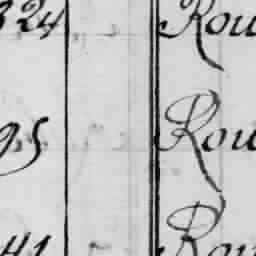 324 Rou
95 Rou
41 Rou